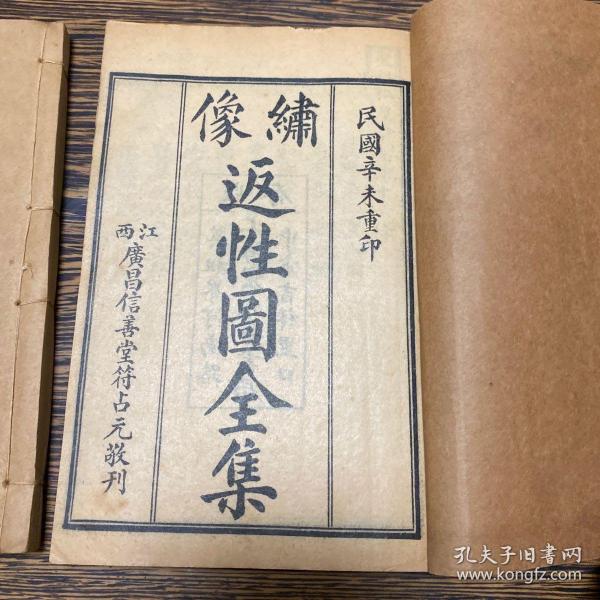 民國辛未重印
繡像
返性圖全集
江西
廣昌信善堂符占元敬刊
孔夫子旧书网
www.kongfz.com